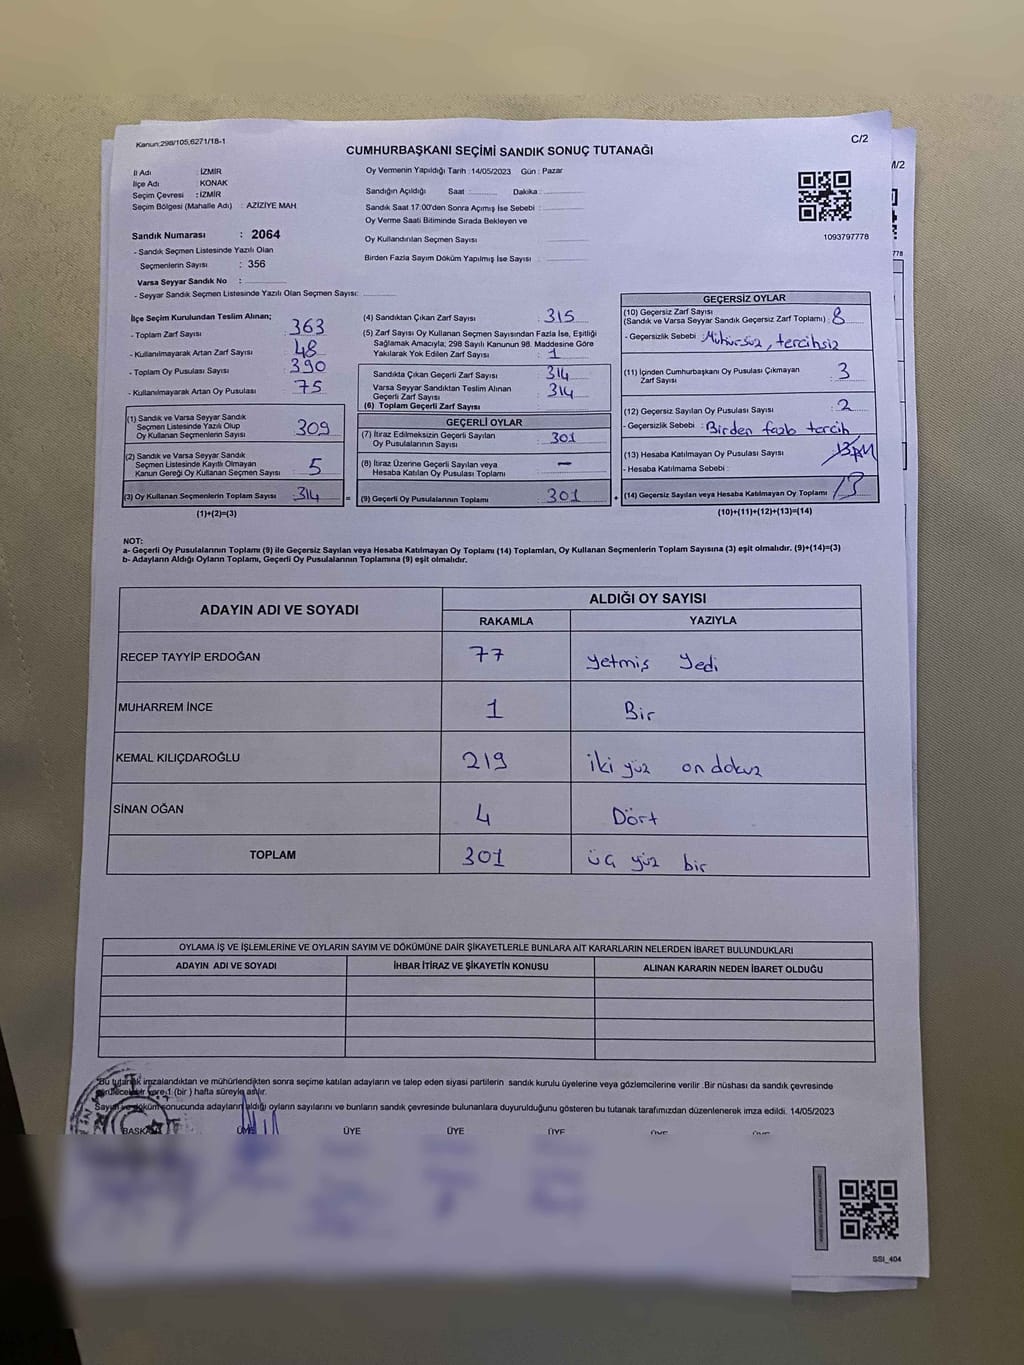 Kanun:298/105,6271/18-1
C/2
CUMHURBAŞKANI SEÇİMİ SANDIK SONUÇ TUTANAĞI
İl Adı : İZMİR
İlçe Adı : KONAK
Seçim Çevresi : İZMİR
Seçim Bölgesi (Mahalle Adı) : AZİZİYE MAH
Oy Vermenin Yapıldığı Tarih : 14/05/2023 Gün : Pazar
Sandığın Açıldığı Saat : Dakika :
Sandık Saat 17:00'den Sonra Açımış İse Sebebi :
Oy Verme Saati Bitiminde Sırada Bekleyen ve
Oy Kullandırılan Seçmen Sayısı
Birden Fazla Sayım Döküm Yapılmış İse Sayısı :
1093797778
Sandık Numarası : 2064
- Sandık Seçmen Listesinde Yazılı Olan
Seçmenlerin Sayısı : 356
Varsa Seyyar Sandık No :
- Seyyar Sandık Seçmen Listesinde Yazılı Olan Seçmen Sayısı:
İlçe Seçim Kurulundan Teslim Alınan;
- Toplam Zarf Sayısı 363
- Kullanılmayarak Artan Zarf Sayısı 48
- Toplam Oy Pusulası Sayısı 390
- Kullanılmayarak Artan Oy Pusulası 75
(1) Sandık ve Varsa Seyyar Sandık
Seçmen Listesinde Yazılı Olup
Oy Kullanan Seçmenlerin Sayısı 309
(2) Sandık ve Varsa Seyyar Sandık
Seçmen Listesinde Kayıtlı Olmayan
Kanun Gereği Oy Kullanan Seçmen Sayısı 5
(3) Oy Kullanan Seçmenlerin Toplam Sayısı 314 =
(1)+(2)=(3)
(4) Sandıktan Çıkan Zarf Sayısı : 315
(5) Zarf Sayısı Oy Kullanan Seçmen Sayısından Fazla İse, Eşitliği
Sağlamak Amacıyla; 298 Sayılı Kanunun 98. Maddesine Göre
Yakılarak Yok Edilen Zarf Sayısı : 1
Sandıkta Çıkan Geçerli Zarf Sayısı : 314
Varsa Seyyar Sandıktan Teslim Alınan
Geçerli Zarf Sayısı : 314
(6) Toplam Geçerli Zarf Sayısı
GEÇERLİ OYLAR
(7) İtiraz Edilmeksizin Geçerli Sayılan
Oy Pusulalarının Sayısı : 301
(8) İtiraz Üzerine Geçerli Sayılan veya
Hesaba Katılan Oy Pusulası Toplamı : —
(9) Geçerli Oy Pusulalarının Toplamı : 301 +
GEÇERSİZ OYLAR
(10) Geçersiz Zarf Sayısı
(Sandık ve Varsa Seyyar Sandık Geçersiz Zarf Toplamı) : 8
- Geçersizlik Sebebi : Mühürsüz, tercihsiz
(11) İçinden Cumhurbaşkanı Oy Pusulası Çıkmayan
Zarf Sayısı : 3
(12) Geçersiz Sayılan Oy Pusulası Sayısı : 2
- Geçersizlik Sebebi : Birden fazla tercih
(13) Hesaba Katılmayan Oy Pusulası Sayısı
- Hesaba Katılmama Sebebi :
(14) Geçersiz Sayılan veya Hesaba Katılmayan Oy Toplamı 13
(10)+(11)+(12)+(13)=(14)
NOT:
a- Geçerli Oy Pusulalarının Toplamı (9) ile Geçersiz Sayılan veya Hesaba Katılmayan Oy Toplamı (14) Toplamları, Oy Kullanan Seçmenlerin Toplam Sayısına (3) eşit olmalıdır. (9)+(14)=(3)
b- Adayların Aldığı Oyların Toplamı, Geçerli Oy Pusulalarının Toplamına (9) eşit olmalıdır.
ADAYIN ADI VE SOYADI
ALDIĞI OY SAYISI
RAKAMLA YAZIYLA
RECEP TAYYİP ERDOĞAN 77 yetmiş yedi
MUHARREM İNCE 1 Bir
KEMAL KILIÇDAROĞLU 219 iki yüz on dokuz
SİNAN OĞAN 4 Dört
TOPLAM 301 üç yüz bir
OYLAMA İŞ VE İŞLEMLERİNE VE OYLARIN SAYIM VE DÖKÜMÜNE DAİR ŞİKAYETLERLE BUNLARA AİT KARARLARIN NELERDEN İBARET BULUNDUKLARI
ADAYIN ADI VE SOYADI İHBAR İTİRAZ VE ŞİKAYETİN KONUSU ALINAN KARARIN NEDEN İBARET OLDUĞU
Bu tutanak imzalandıktan ve mühürlendikten sonra seçime katılan adayların ve talep eden siyasi partilerin sandık kurulu üyelerine veya gözlemcilerine verilir .Bir nüshası da sandık çevresinde
1 (bir ) hafta süreyle asılır.
Sayım ve döküm sonucunda adayların aldığı oyların sayılarını ve bunların sandık çevresinde bulunanlara duyurulduğunu gösteren bu tutanak tarafımızdan düzenlenerek imza edildi. 14/05/2023
BAŞKAN ÜYE ÜYE ÜYE ÜYE
SSI_404